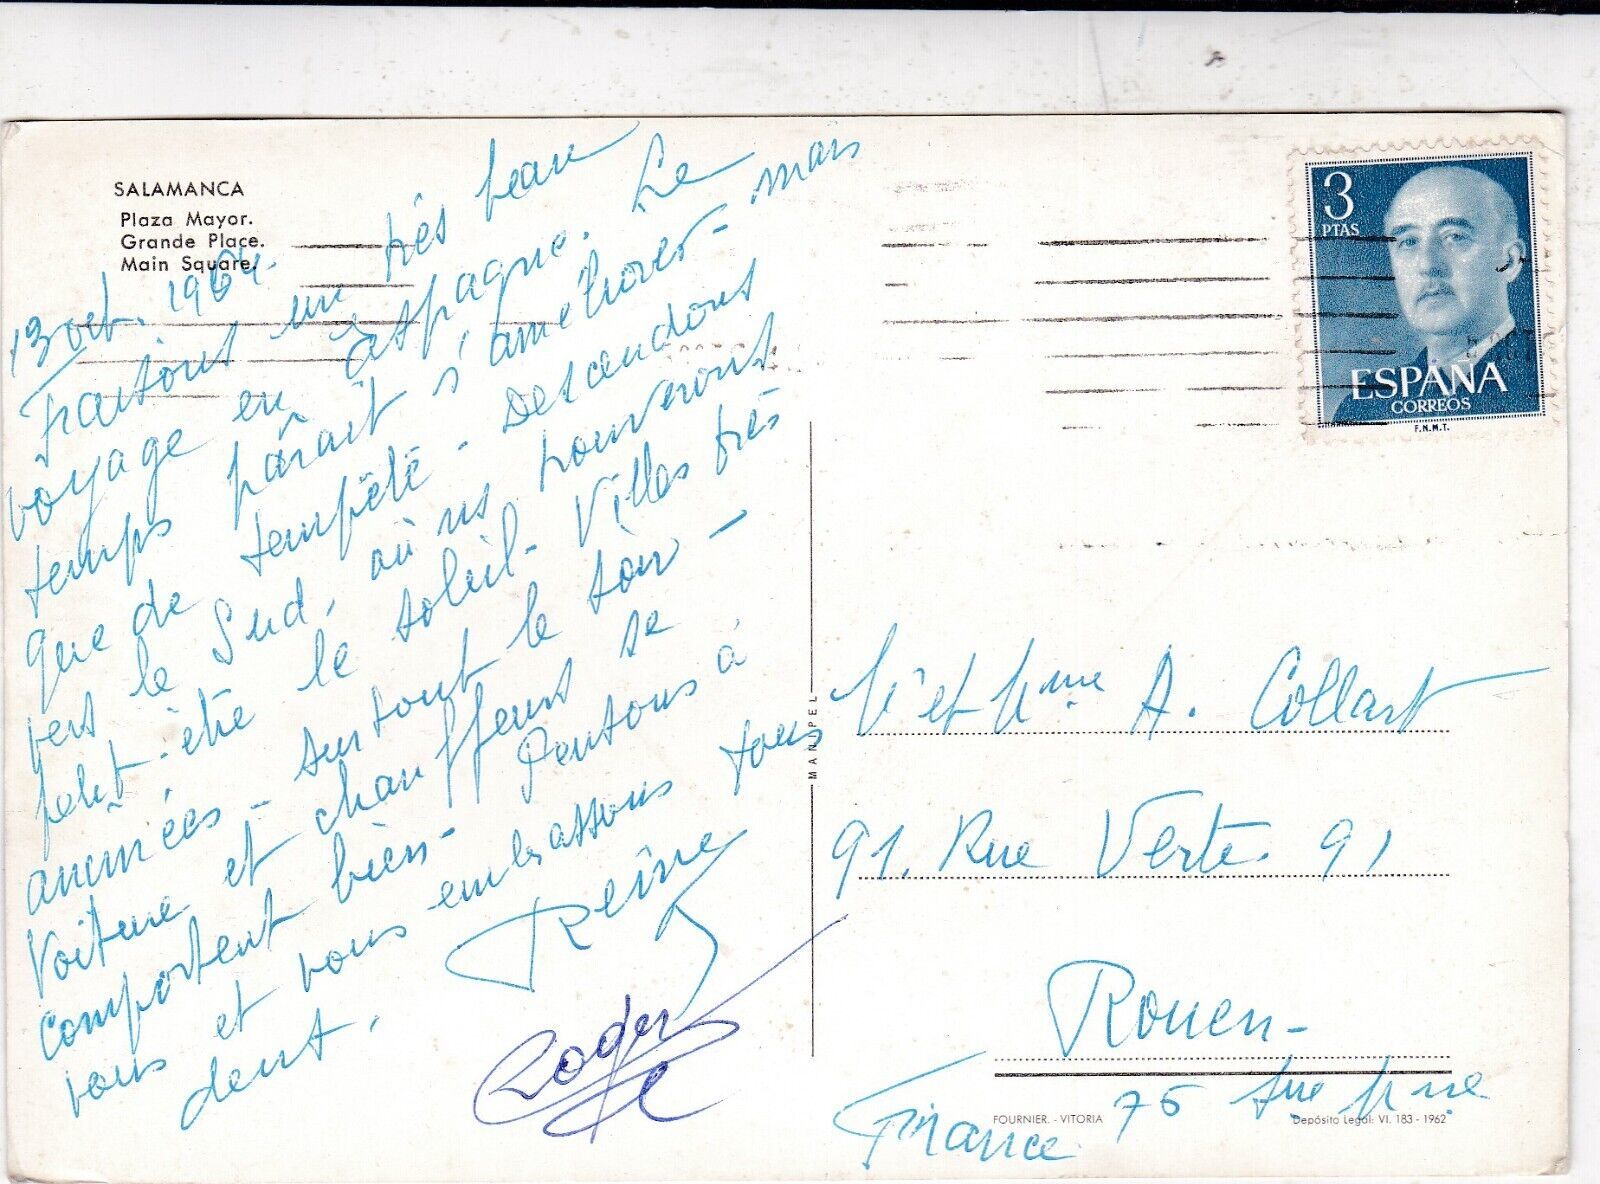 SALAMANCA
Plaza Mayor.
Grande Place.
Main Square.
13 oct. 1964.
Faisons un très beau
voyage en Espagne. Le
temps paraît s'améliorer - mais
que de tempête - Descendons
vers le Sud, où ns trouverons
peut-être le soleil - Villes très
animées - surtout le soir -
Voiture et chauffeurs se
comportent bien - Pensons à
vous et vous embrassons tous
deux.
Reine
Roger
MANIPEL
3
PTAS
ESPAÑA
CORREOS
F.N.M.T.
Mr et Mme A. Collart
91. Rue Verte 91
Rouen -
France. 76 Sne Mme
FOURNIER. - VITORIA
Depósito Legal: VI. 183 - 1962